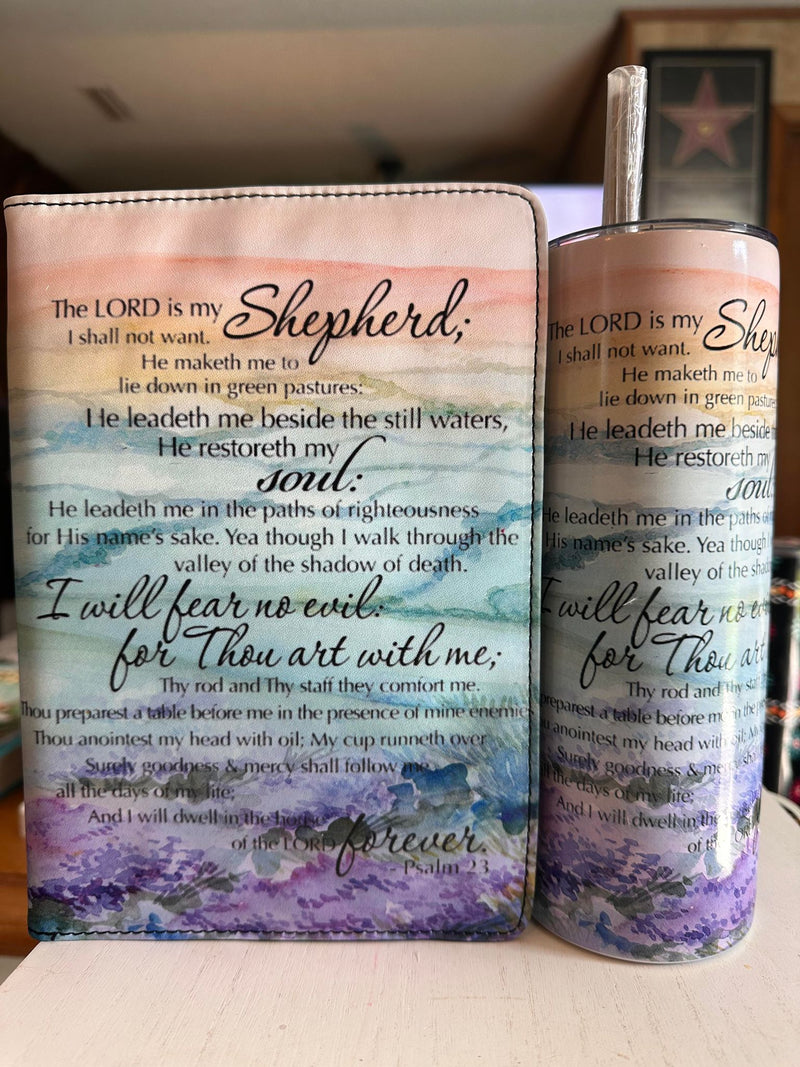 The LORD is my Shepherd;
I shall not want.
He maketh me to
lie down in green pastures:
He leadeth me beside the still waters,
He restoreth my
soul:
He leadeth me in the paths of righteousness
for His name's sake. Yea though I walk through the
valley of the shadow of death.
I will fear no evil:
for Thou art with me;
Thy rod and Thy staff they comfort me.
Thou preparest a table before me in the presence of mine enemies
Thou anointest my head with oil; My cup runneth over
Surely goodness & mercy shall follow me
all the days of my life;
And I will dwell in the house
of the LORD forever.
- Psalm 23
The LORD is my Shep
I shall not want.
He maketh me to
lie down in green pastures
He leadeth me beside the
He restoreth my
soul:
He leadeth me in the paths
His name's sake. Yea though I
valley of the shad
I will fear no ev
for Thou art
Thy rod and Thy staff
preparest a table before me in the pres
anointest my head with oil; My
Surely goodness & mercy shall
all the days of my life;
And I will dwell in the
of the LORD